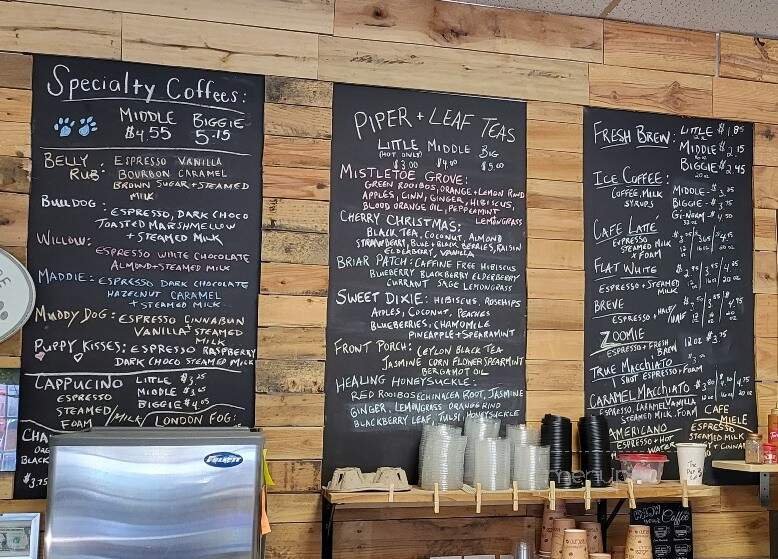 Specialty Coffees:
MIDDLE BIGGIE
$4.55 5.15
BELLY RUB: ESPRESSO VANILLA
BOURBON CARAMEL
BROWN SUGAR + STEAMED
MILK
BULLDOG:
ESPRESSO, DARK CHOCO
TOASTED MARSHMELLOW
+ STEAMED MILK
WILLOW:
ESPRESSO WHITE CHOCOLATE
ALMOND + STEAMED MILK
MADDIE: ESPRESSO DARK CHOCOLATE
HAZELNUT CARAMEL
+ STEAMED MILK
MUDDY DOG: ESPRESSO CINNABUN
VANILLA + STEAMED
MILK
PUPPY KISSES: ESPRESSO RASPBERRY
DARK CHOCO STEAMED MILK
CAPPUCINO LITTLE
ESPRESSO MIDDLE
STEAMED BIGGIE
FOAM /MILK / LONDON FOG:
CHA
BLACK
$3.75
PIPER + LEAF TEAS
LITTLE MIDDLE BIG
(HOT ONLY)
$3.00 $4.00 $5.00
MISTLETOE GROVE:
GREEN ROOIBOS, ORANGE + LEMON RIND
APPLES, CINN, GINGER, HIBISCUS,
BLOOD ORANGE OIL, PEPPERMINT
LEMONGRASS
CHERRY CHRISTMAS:
BLACK TEA, COCONUT, ALMOND
STRAWBERRY, BLUE + BLACK BERRIES, RAISIN
ELDERBERRY, VANILLA
BRIAR PATCH: CAFFINE FREE HIBISCUS
BLUEBERRY BLACKBERRY ELDERBERRY
CURRANT SAGE LEMONGRASS
SWEET DIXIE: HIBISCUS, ROSEHIPS
APPLES, COCONUT, PEACHES
BLUEBERRIES, CHAMOMILE
PINEAPPLE + SPEARAMINT
FRONT PORCH: CEYLON BLACK TEA
JASMINE CORN FLOWER SPEARMINT
BERGAMOT OIL
HEALING HONEYSUCKLE:
RED ROOIBOS ECHINACEA ROOT, JASMINE
GINGER, LEMONGRASS, ORANGE RIND
BLACKBERRY LEAF, TULSI, HONEYSUCKLE
FRESH BREW: LITTLE $1.85
MIDDLE $2.15
BIGGIE $2.45
20 OZ
ICE COFFEE:
COFFEE, MILK MIDDLE
SYRUPS BIGGIE
GI-NORM
CAFE LATÉ
ESPRESSO
STEAMED MILK
+ FOAM
FLAT WHITE
ESPRESSO + STEAMED
MILK
BREVE
ESPRESSO + HALF/
HALF
ZOOMIE
ESPRESSO + FRESH
BREW 12 OZ $3.75
TRUE MACCHIATO
1 SHOT ESPRESSO + FOAM
CARAMEL MACCHIATO
ESPRESSO, CARAMEL VANILLA
STEAMED MILK, FOAM
AMERICANO
ESPRESSO + HOT
WATER
CAFE
MIELE
ESPRESSO
STEAMED MILK
+ CINNA